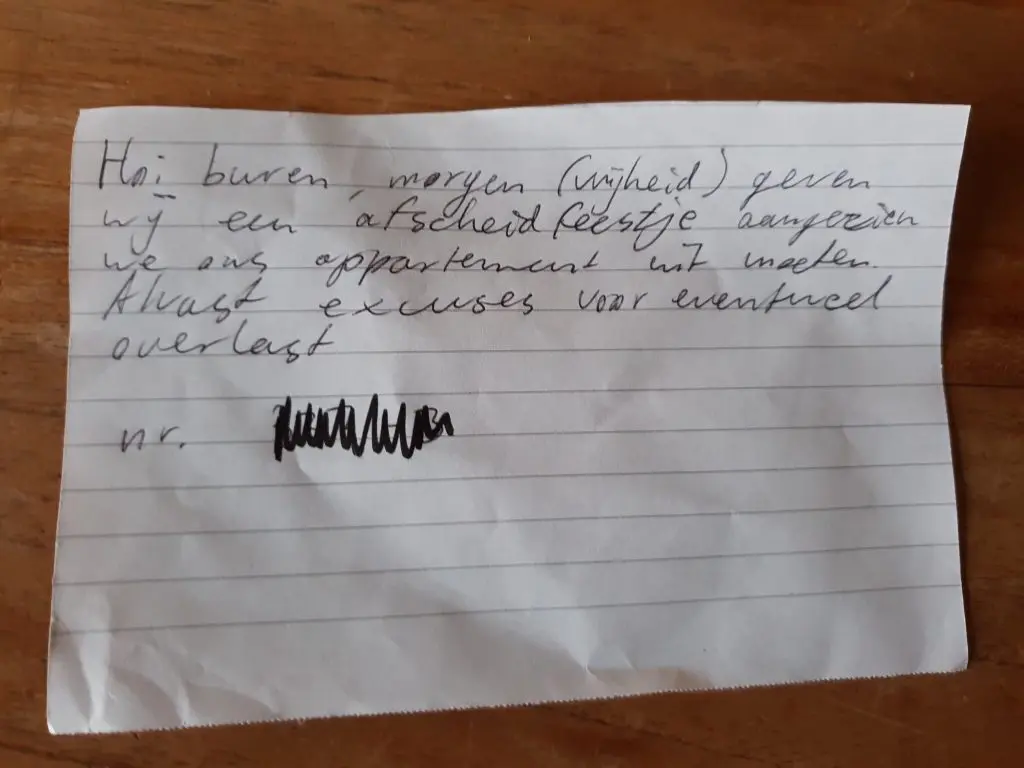 Hoi buren, morgen (vrijheid) geven
wij een afscheidfeestje aangezien
we ons appartement uit moeten.
Alvast excuses voor eventueel
overlast
nr.